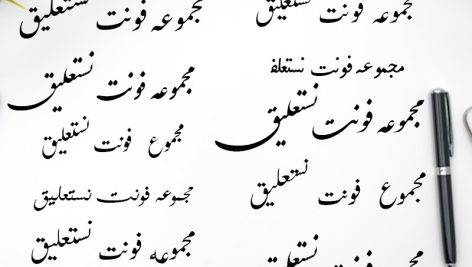 مجموعه فونت نستعلیق
مجموعه فونت نستعلف
مجموعه فونت نستعلیق
مجموع فونت نستعلیق
مجموعه فونت نستعلیق
مجموعه فونت نستعلیق
مجموع فونت نستعلیق
مجموعه فونت نستعلیق
مجموعه فونت نستعلیق